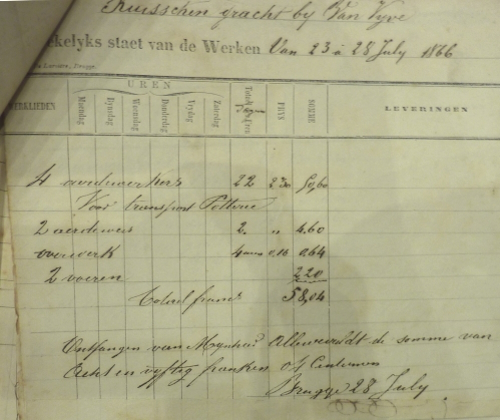 Kruisschen gracht by Van Vyve
ekelyks staet van de Werken Van 23 a 28 July 1866
UREN
WERKLIEDEN Maendag Dynsdag Woensdag Donderdag Vrydag Zaterdag PRYS SOMME LEVERINGEN
4 aerdewerkers 22 2.30 50,60
Voor transport Potterie
2 aerdewers 2. " 4.60
overwerk 4 0,16 0,64
2 voeren 2 20
Totael francs 58,04
Ontfangen van Mynheer de somme van
Acht en vyftig franken 04 Centimen
Brugge 28 July